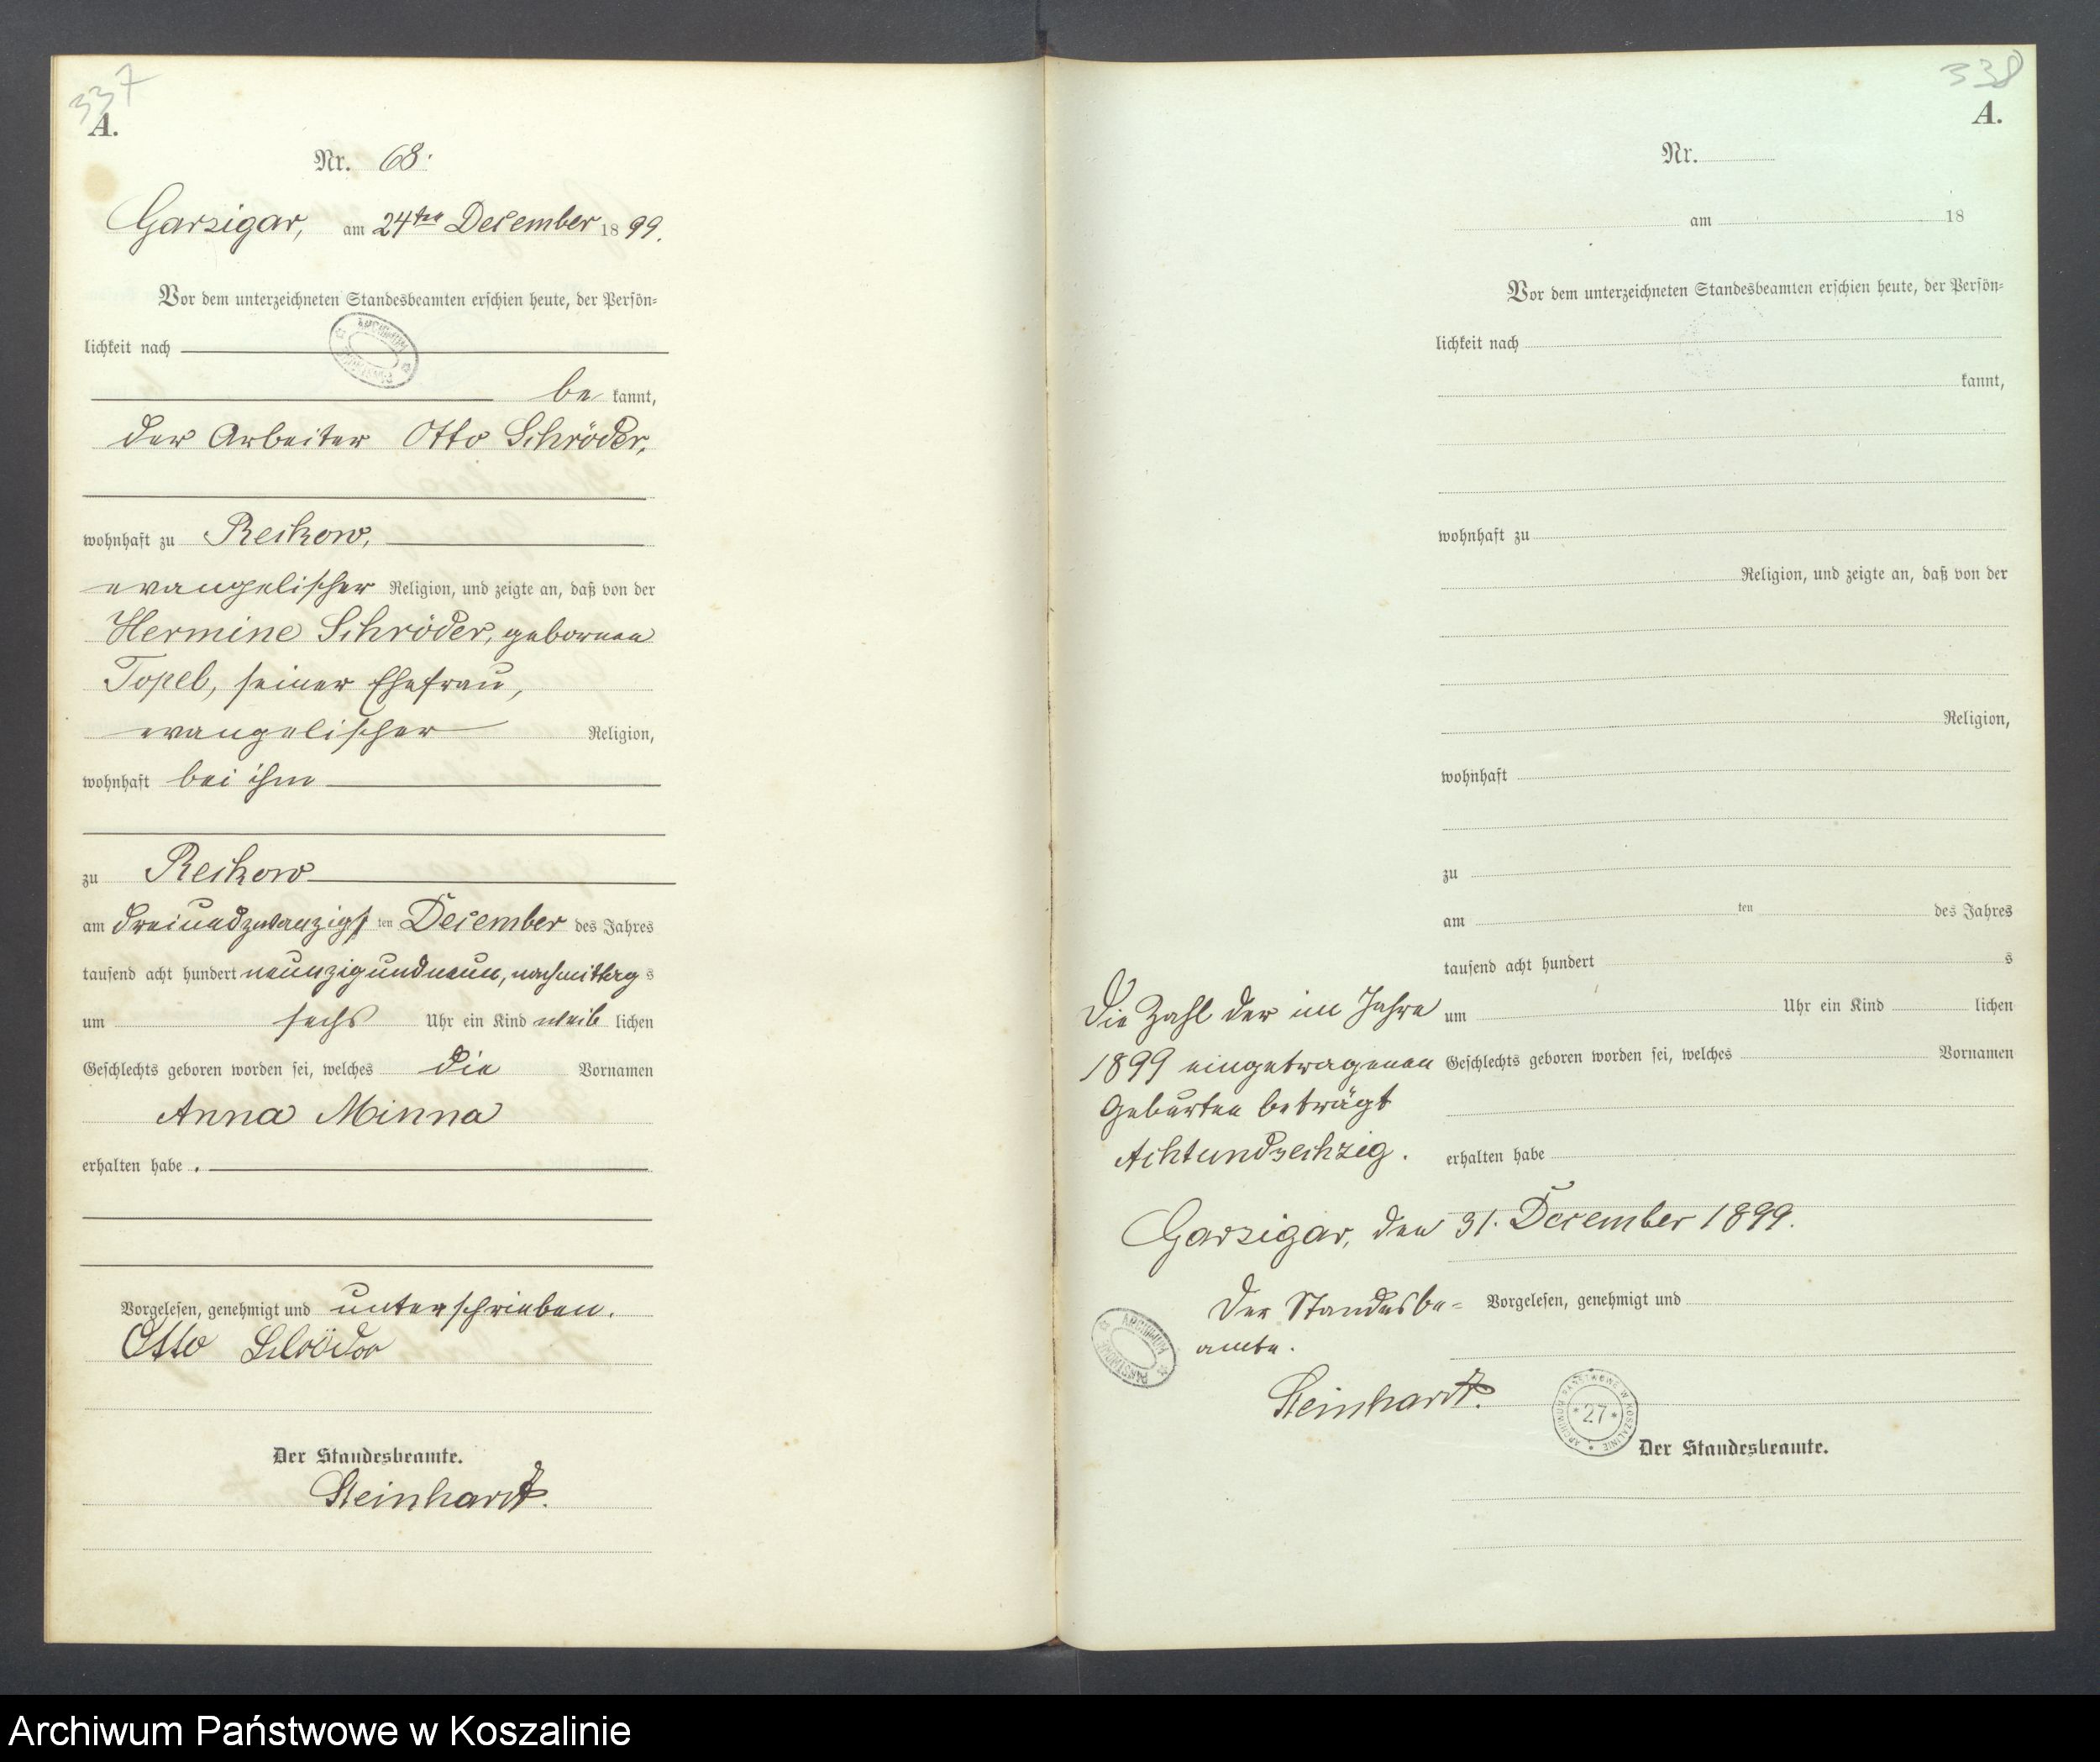 337
A.
Nr. 68.
Garzigar, am 24ten December 1899.
Vor dem unterzeichneten Standesbeamten erschien heute, der Persön-
lichkeit nach
bekannt,
der Arbeiter Otto Schröder,
wohnhaft zu Reckow,
evangelischer Religion, und zeigte an, daß von der
Hermine Schröder, gebornen
Topel, seiner Ehefrau,
evangelischer Religion,
wohnhaft bei ihm
zu Reckow
am dreiundzwanzigsten December des Jahres
tausend acht hundert neunzig und neun, nachmittags
um sechs Uhr ein Kind weiblichen
Geschlechts geboren worden sei, welches die Vornamen
Anna Minna
erhalten habe.
Vorgelesen, genehmigt und unterschrieben.
Otto Schröder
Der Standesbeamte.
Steinhardt.
338
A.
Nr.
am 18
Vor dem unterzeichneten Standesbeamten erschien heute, der Persön-
lichkeit nach
kannt,
wohnhaft zu
Religion, und zeigte an, daß von der
Religion,
wohnhaft
zu
am ten des Jahres
tausend acht hundert s
um Uhr ein Kind lichen
Geschlechts geboren worden sei, welches Vornamen
erhalten habe
Die Zahl der im Jahre
1899 eingetragenen
Geburten beträgt
Achtundsechzig.
Garzigar, den 31. December 1899.
Der Standesbe-
amte.
Steinhardt.
Vorgelesen, genehmigt und
ARCHIWUM PAŃSTWOWE
ARCHIWUM PAŃSTWOWE W KOSZALINIE
*27*
Der Standesbeamte.
Archiwum Państwowe w Koszalinie